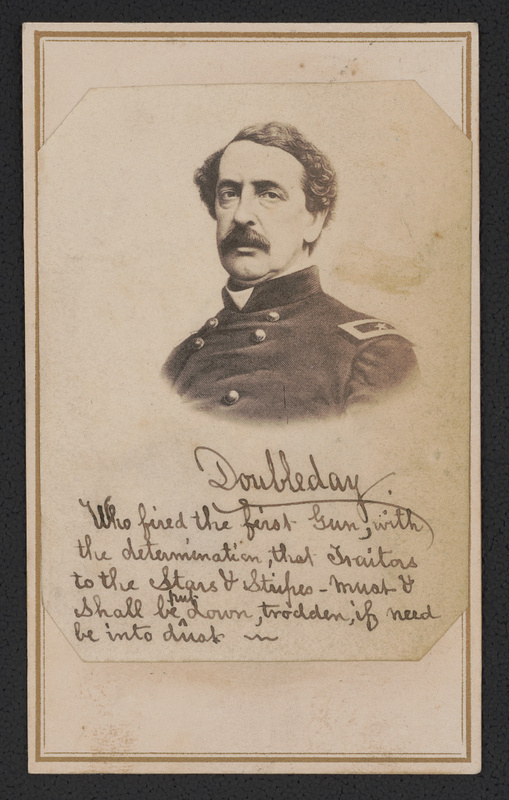 Doubleday.
Who fired the first Gun, with
the determination, that Traitors
to the Stars & Stripes - Must &
Shall be put down, trodden, if need
be into dust